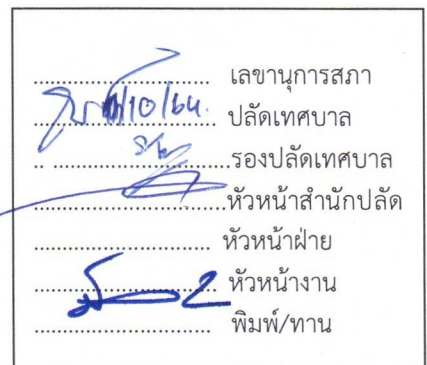 .................... เลขานุการสภา
/10/64. ปลัดเทศบาล
.................... รองปลัดเทศบาล
.................... หัวหน้าสำนักปลัด
.................... หัวหน้าฝ่าย
.................... หัวหน้างาน
.................... พิมพ์/ทาน